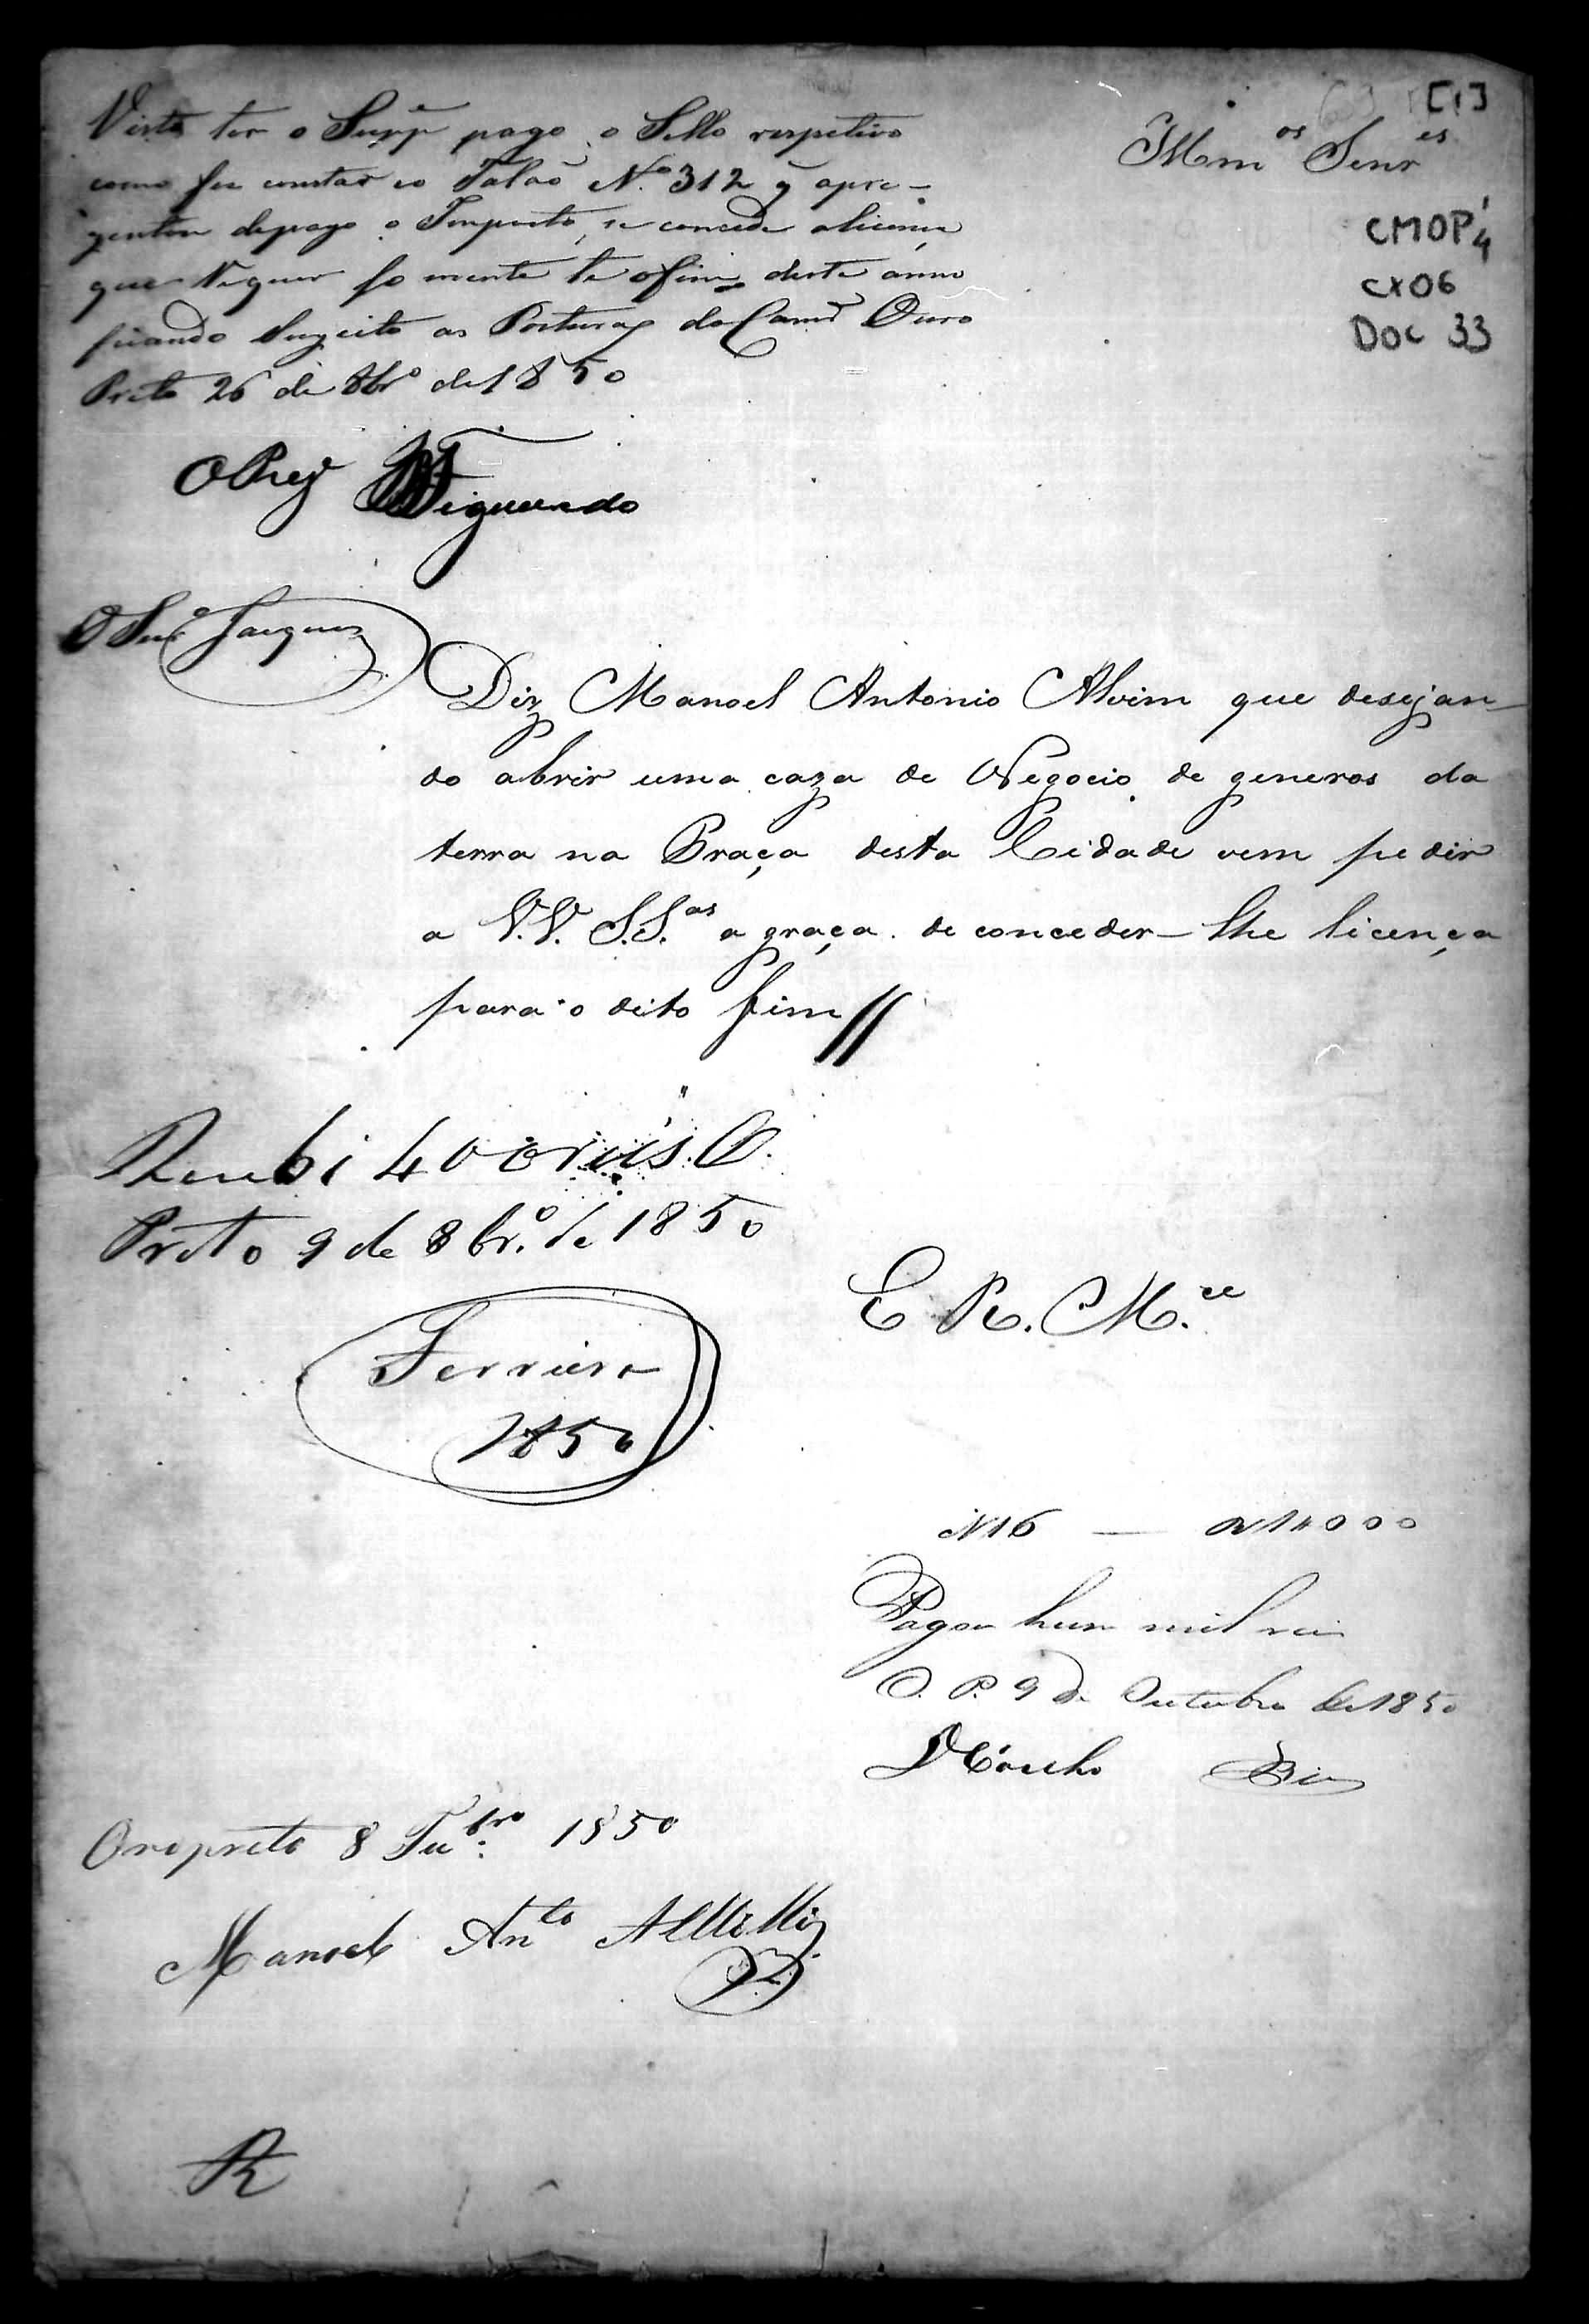 [1]
Illm.os Senr.es
CMOP 4
CX06
Doc 33
Visto ter o Supp.e pago o Sello respetivo
como fes constar co Talaõ N.º 312 q̃ apre-
zentou depago o Imposto, se concede alicença
que requer so mente te o fim deste anno
ficando sugeito as Posturas da Cam.ª Ouro
Preto 26 de 8br.º de 1850
O Prez.e Figueiredo
O Secr.º
Diz Manoel Antonio Alvim que desejan-
do abrir uma caza de Negocio de generos da
terra na Praça desta Cidade vem pedir
a V.V. S.S.as a graça de conceder-lhe licença
para o dito fim //
Recebi 400 reis. O.
Preto 9 de 8br.º de 1850
Ferreira
1850
E R. M.ce
N 16 — R 1#000
Pagou hum mil reis
O. P. 9 de Outubro de 1850
Coelho
Oropreto 8 1850
Manoel An.to
R